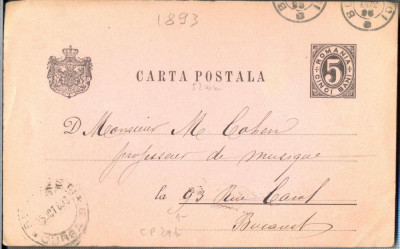 1893
ROMANIA
5
CINCI BANI
CARTA POSTALA
D Monsieur M Cohen
professeur de musique
la 93 Rue Carol
Bucarest
CP 246